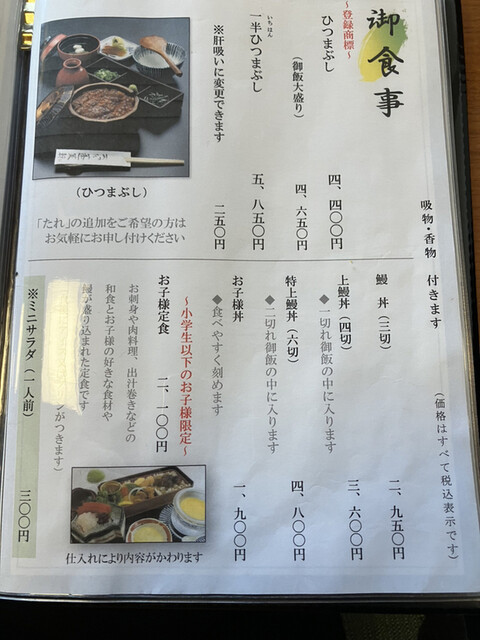 御食事
吸物・香物 付きます
(価格はすべて税込表示です)
~登録商標~
ひつまぶし 四、四〇〇円
(御飯大盛り) 四、六五〇円
いちはん
一半ひつまぶし 五、八五〇円
※肝吸いに変更できます 二五〇円
(ひつまぶし)
「たれ」の追加をご希望の方は
お気軽にお申し付けください
鰻 丼(三切) 二、九五〇円
上鰻丼(四切) 三、六〇〇円
◆一切れ御飯の中に入ります
特上鰻丼(六切) 四、八〇〇円
◆二切れ御飯の中に入ります
お子様丼 一、九〇〇円
◆食べやすく刻めます
~小学生以下のお子様限定~
お子様定食 二、一〇〇円
お刺身や肉料理、出汁巻きなどの
和食とお子様の好きな食材や
鰻が盛り込まれた定食です
がつきます)
仕入れにより内容がかわります
※ミニサラダ(一人前) 三〇〇円